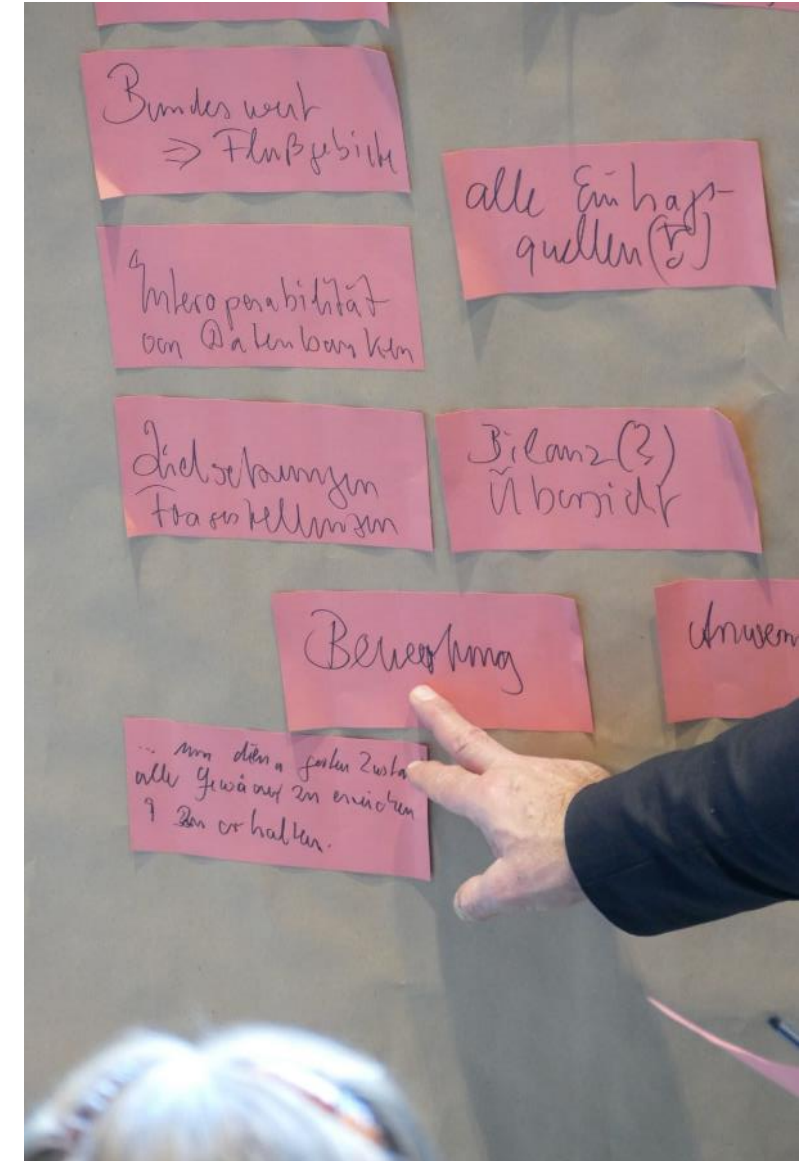 Bundesweit
⇒ Flußgebiete
alle Eintrags-
quellen (?)
Interoperabilität
von Datenbanken
Zielsetzungen
Fragestellungen
Bilanz (?)
Übersicht
Bewertung
Anwen
... um den guten Zusta
alle Gewässer zu erreichen
zu erhalten.